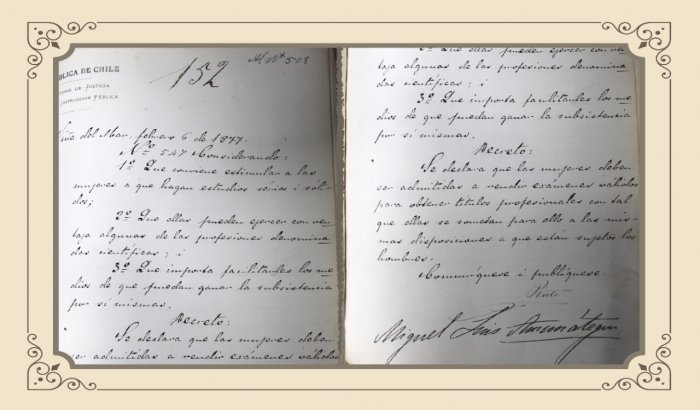 BLICA DE CHILE
DE JUSTICIA
INSTRUCCIÓN PÚBLICA
152
Viña del Mar, febrero 6 de 1877.
Nº 547 Considerando:
1º Que conviene estimular a las
mujeres a que hagan estudios serios i sóli-
dos;
2º Que ellas pueden ejercer con ven-
taja algunas de las profesiones denomina
das científicas; i
3º Que importa facilitarles los me
dios de que puedan ganar la subsistencia
por sí mismas.
Decreto:
Se declara que las mujeres deben
ser admitidas a rendir exámenes válidos
2º Que ellas pueden ejercer con ven-
taja algunas de las profesiones denomina
das científicas; i
3º Que importa facilitarles los me
dios de que puedan ganar la subsistencia
por sí mismas.
Decreto:
Se declara que las mujeres deben
ser admitidas a rendir exámenes válidos
para obtener títulos profesionales con tal
que ellas se sometan para ello a las mis-
mas disposiciones a que están sujetos los
hombres.
Comuníquese i publíquese.
Pinto
Miguel Luis Amunátegui